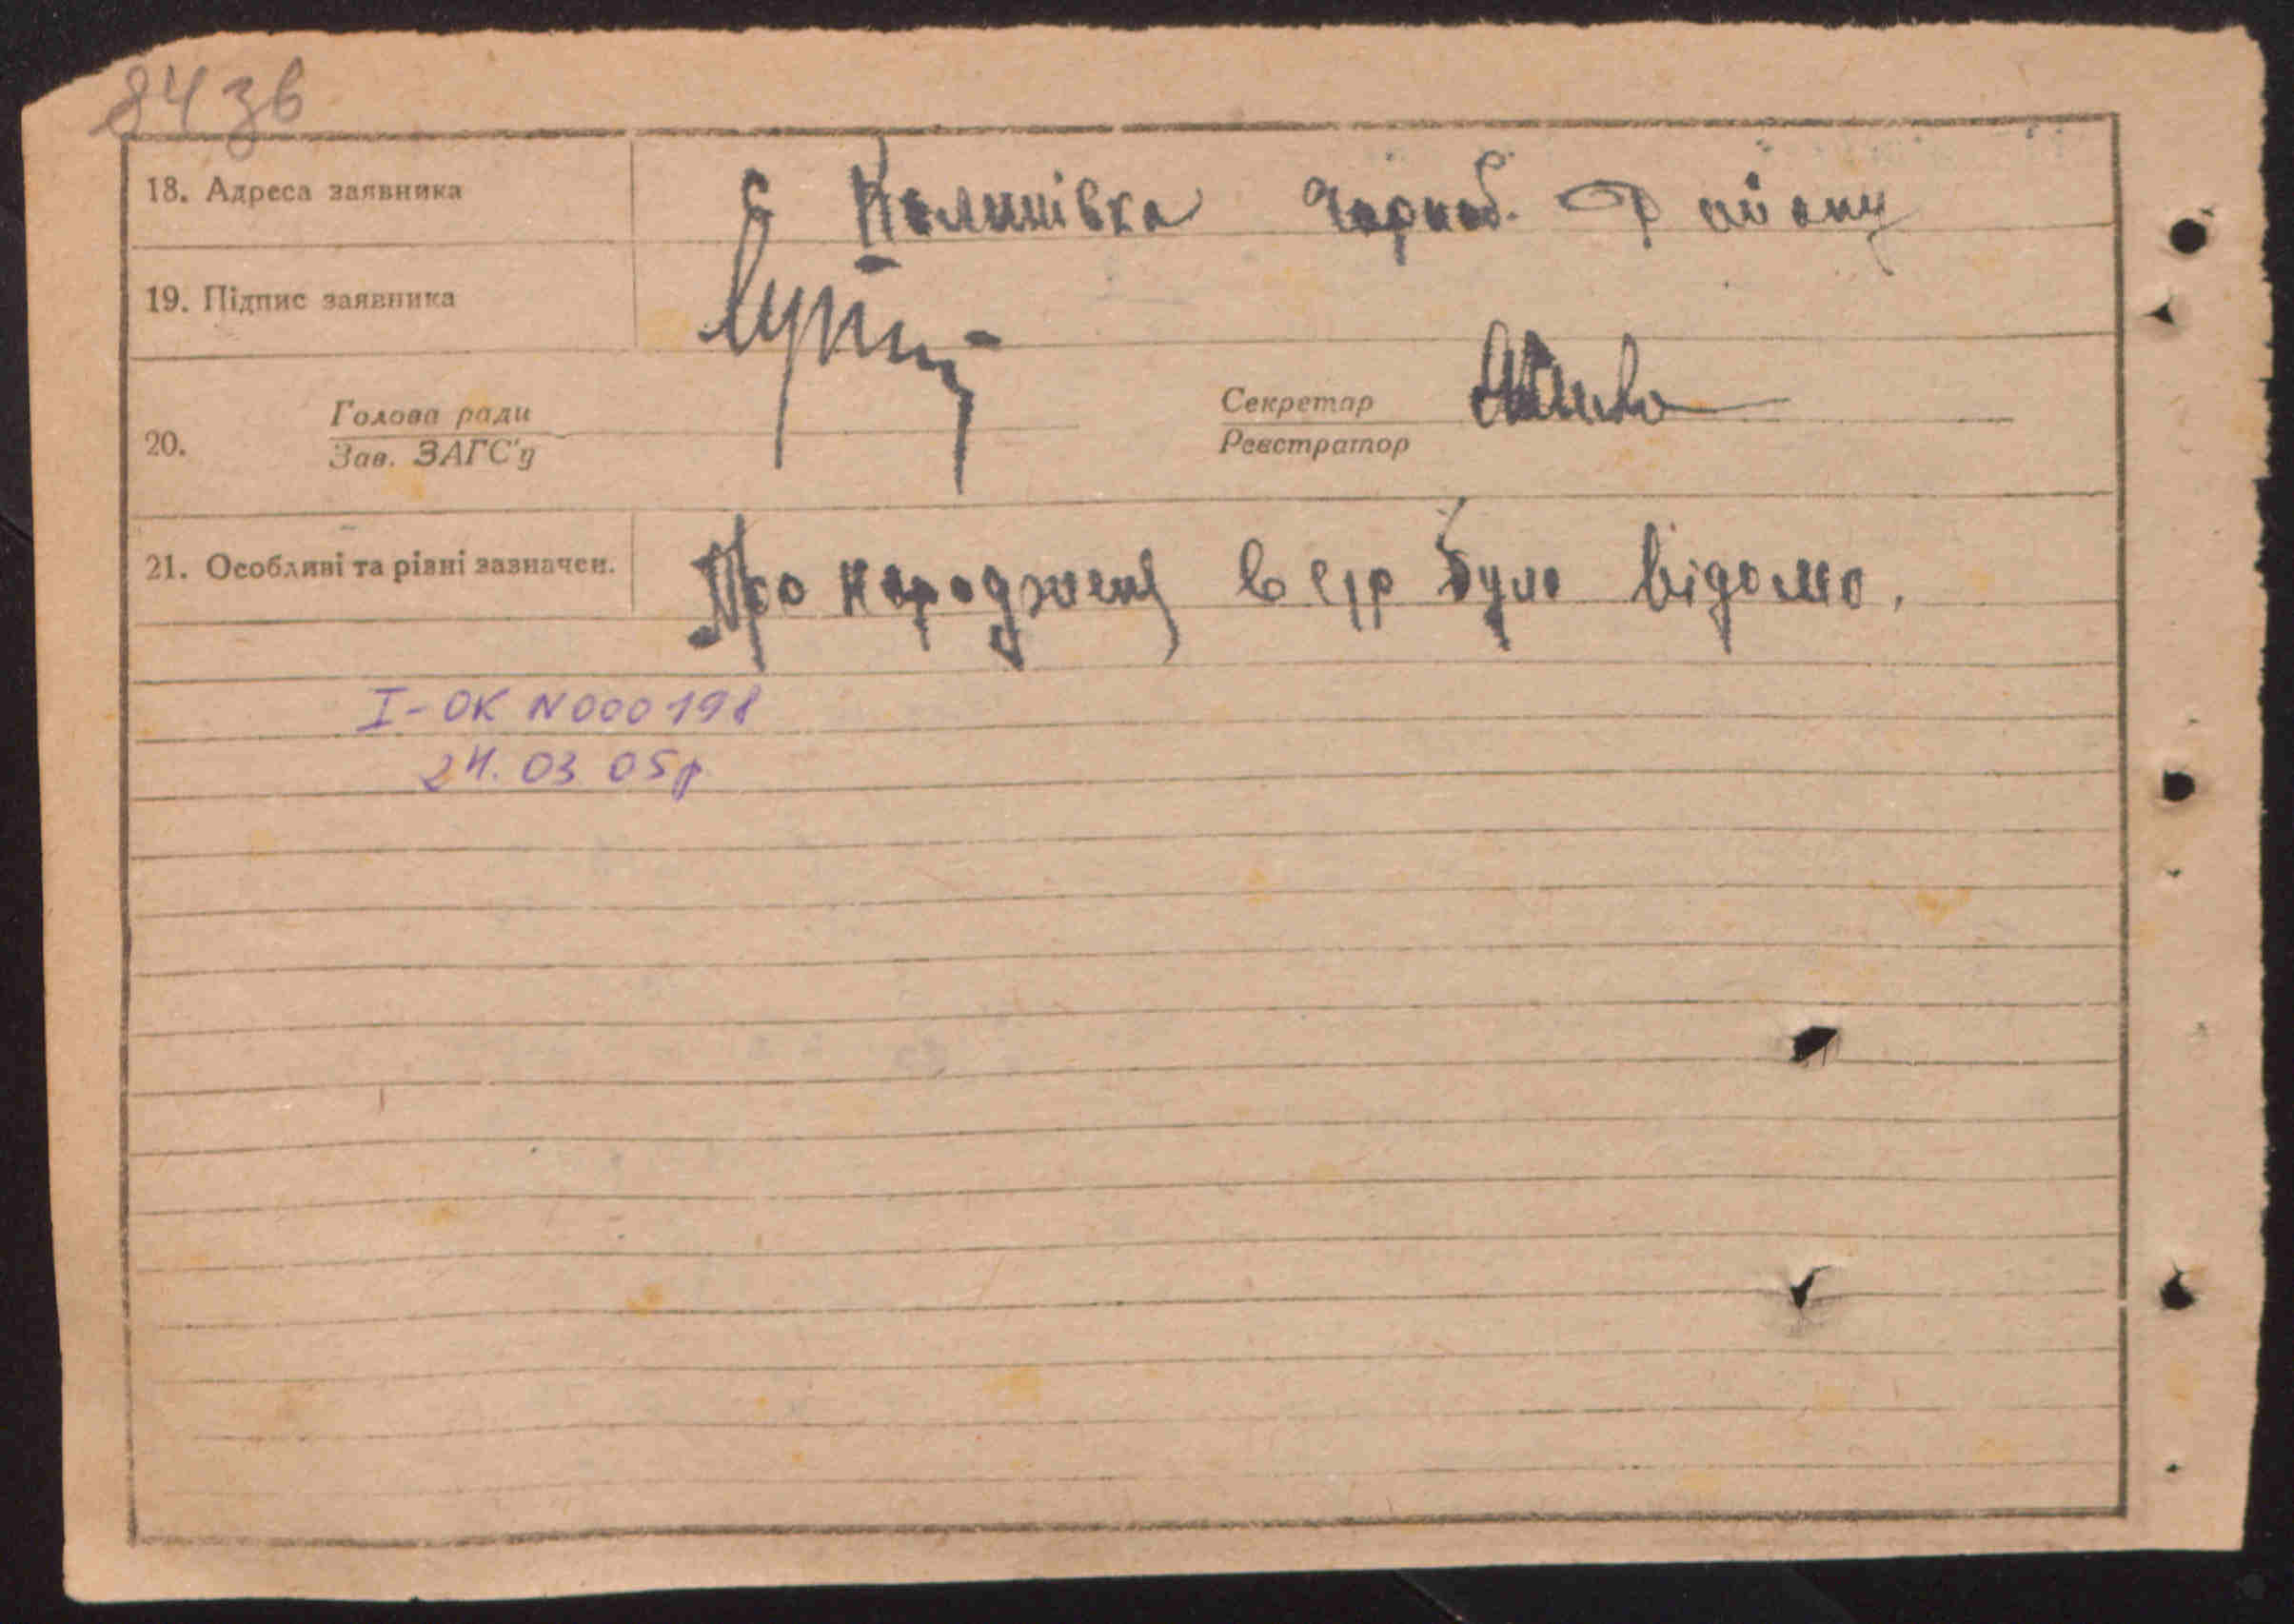 84 зв
18. Адреса заявника с Калинівка Чорноб. Району
19. Підпис заявника
Голова ради Секретар
20. Зав. ЗАГС'у Реєстратор
21. Особливі та різні зазначен. Про народжень в с/р було відомо.
I-ОК N000198
24.03 05р